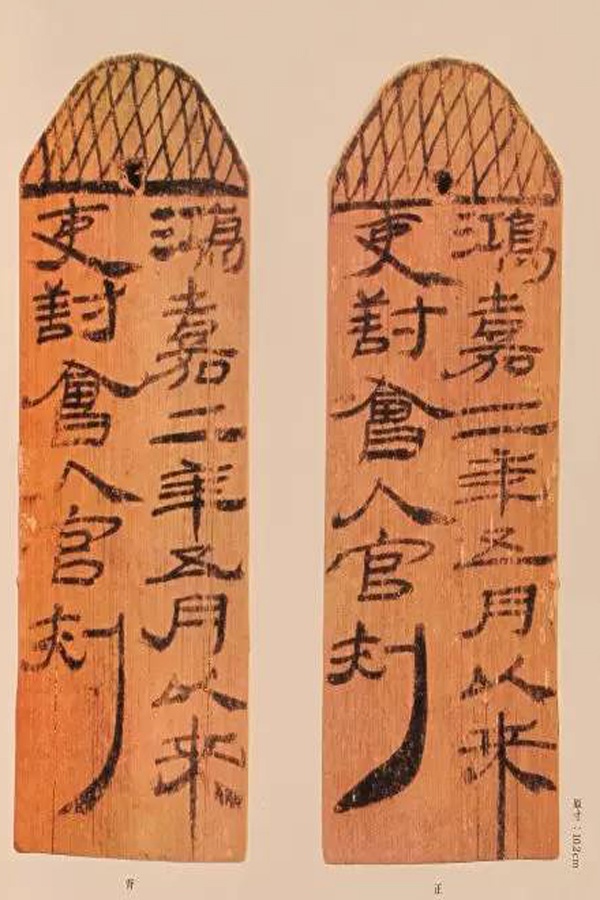 鴻嘉二年五月以來
吏對會入官刺
正
鴻嘉二年五月以來
吏對會入官刺
背
原寸：10.2cm